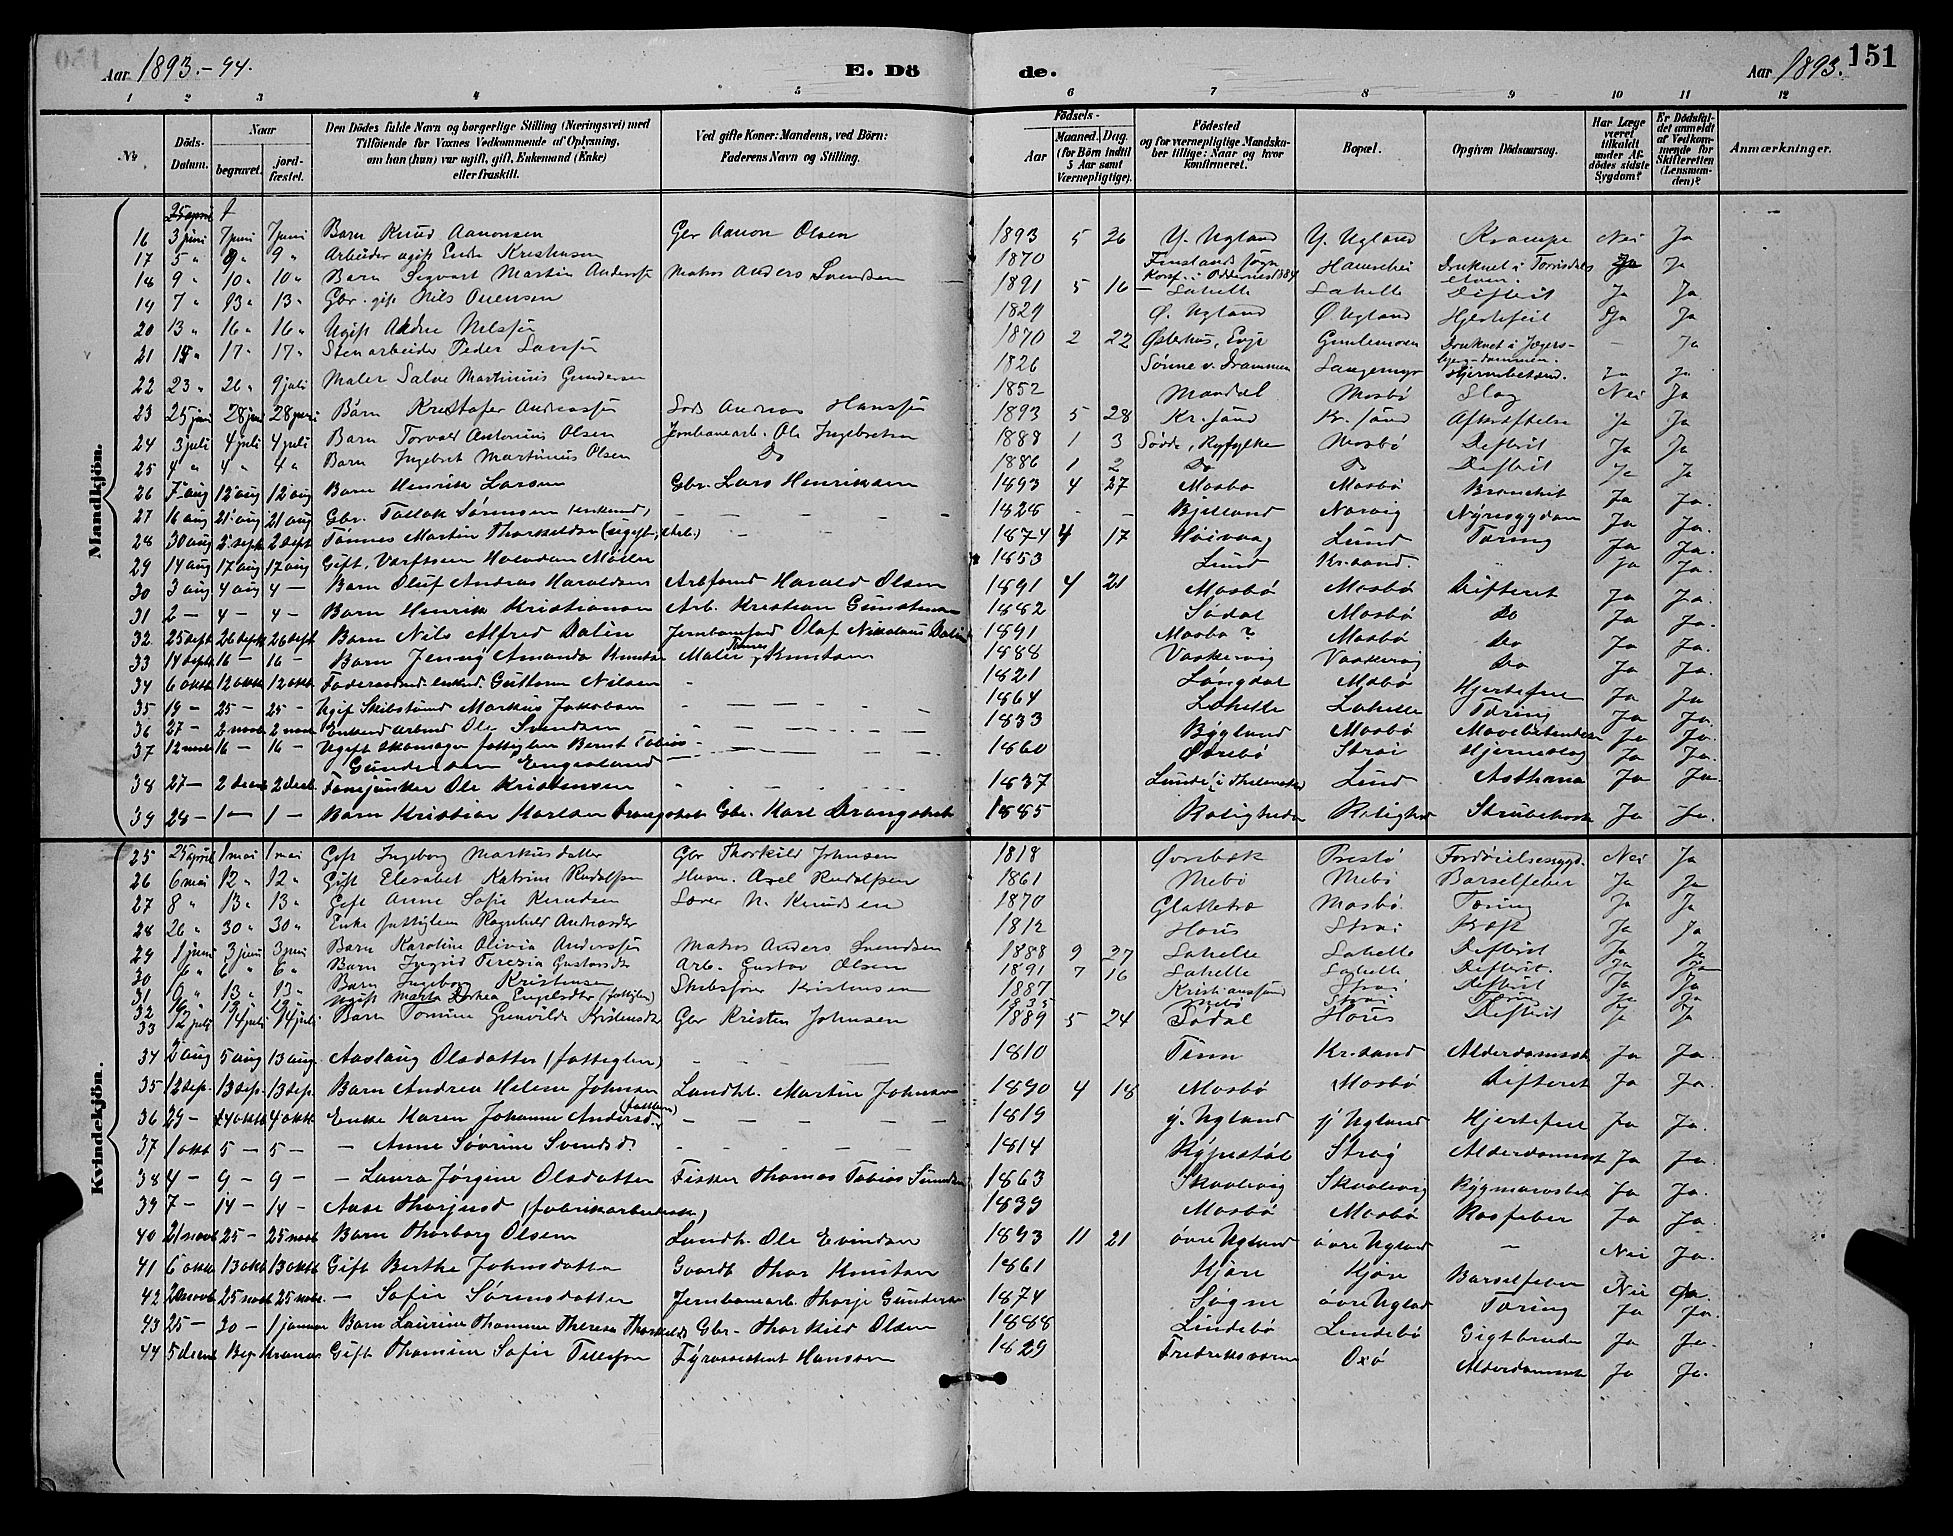 151
Aar 1893.-94.
E. Dö
de.
Aar 1893.
1 2 3 4 5 6 7 8 9 10 11 12
No
Döds-Datum.
Naar
begravet.
jord-fæstet.
Den Dödes fulde Navn og borgerlige Stilling (Næringsvei) med
Tilföiende for Voxnes Vedkommende af Oplysning,
om han (hun) var ugift, gift, Enkemand (Enke)
eller fraskilt.
Ved gifte Koner: Mandens, ved Börn:
Faderens Navn og Stilling.
Födsels-
Aar
Maaned. Dag.
(for Börn indtil
5 Aar samt
Værnepligtige).
Födested
og for værnepligtige Mandska-
ber tillige: Naar og hvor
konfirmeret.
Bopæl.
Opgiven Dödsaarsag.
Har Læge
været
tilkaldt
under Af-
dödes sidste
Sygdom?
Er Dödsfal-
det anmeldt
af Vedkom-
mende for
Skifteretten
(Lensman-
den)?
Anmærkninger.
Mandkjön.
25 april
16 3 juni 7 juni 7 juni Barn Knud Aanonsen Gbr Aanon Olsen 1893 5 26 Y. Ugland Y. Ugland Krampe Nei Ja
17 5 " 9 " 9 " Arbeider ugift Endre Kristensen 1870 Finslands sogn Konf. i Oddernes 1884 Druknet i Torrisdals elven Ja
18 9 " 10 " 10 " Barn Sigvart Martin Anderss. Matros Anders Svendsen 1891 5 16 Lahelle Lahelle Difterit Ja Ja
19 7 " 13 " 13 " Gbr. gift Nils 1829 Ø. Ugland Ø. Ugland Hjertefeil Ja Ja
20 13 " 16 " 16 " Ugift Nilssøn 1870 2 22 Østerhus, Evje Druknet i Jægersbergdammen. - Ja
21 15 " 17 " 17 " Stenarbeider Peder Larssøn 1826 Hjernebetænd. Ja Ja
22 23 " 26 " 9 juli Maler Salve Martinius Gundersen 1852 Mandal Mosbö Slag Nei Ja
23 25 juni 28 juni 28 juni Barn Kristofer Andreassøn Andreas Hanssøn 1893 5 28 Kr.sand Kr.sand Afkræftelse Ja Ja
24 3 juli 4 juli 4 juli Barn Torvald Antonius Olsen Jernbanearb. Ole Ingebretsen 1888 1 3 Ryfylke Mosbö Difterit Ja Ja
25 4 " 4 " 4 " Barn Ingebret Martinius Olsen Do 1886 1 2 Do Do Difterit Ja Ja
26 5 aug 12 aug 12 aug Barn Henrik Larsen Gbr. Lars Henriksen 1893 4 27 Mosbø Mosbö Bronchit Ja Ja.
27 16 aug 21 aug 21 aug Gbr. Tallak Sørensen (enkem.) - - 1828 - - Bjelland Narvig Nyresygdom Ja Ja.
28 30 aug 2 sept 2 sept Tønnes Martin Thorkildsen (ugift, arb.) - - 1874 4 17 Høivaag Lund Tæring Ja Ja.
29 14 aug 17 aug 17 aug Gift, Møller 1853 Lund Kr.sand. Ja Ja.
30 3 aug 4 aug 4 - Barn Oluf Andreas Haraldsen Arbfmd Harald Olsen 1891 4 21 Mosbö Mosbö Difterit Ja Ja.
31 2 - 4 - 4 - Barn Henrik Kristiansen Arb. Kristian 1882 Sødal Mosbö Do Ja Ja.
32 25 sept 26 sept 26 sept Barn Nils Alfred Dalin Olaf Nikolaus Dalin 1891 Mosbø? Mosbö Do Ja Ja.
33 14 sept 16 - 16 - Barn Jenny Amanda Knutsen Maler Knutsen 1888 Vaskevig Do Ja Ja.
34 6 oktb 12 oktb 12 oktb Guttorm Nilsen - 1821 Langdal Mosbö Hjertefeil Ja Ja
35 19 - 25 - 25 - Ugift Markus Jakobsen - - - 1864 Lahelle Lahelle Tæring Ja Ja.
36 27 - 2 novb 2 novb Enkemd arbmd Ole Svendsen - - - 1833 Bygland Mosbö Ja Ja.
37 12 novb 16 - 16 - Ugift fattiglem Bernt Tobias Gundersen Engesland - - 1860 Øvrebö Strai Hjerneslag Ja Ja.
38 27 - 2 decb 2 decb Fanejunker Ole Kristensen - - - 1837 Lunde i Thelemarken Lund Asthma Ja Ja
39 28 - 1 - 1 - Barn Kristian Karlsen Drangsholt Gbr. Karl Drangsholt 1885 Roligheden Roligheden Strubehoste Ja Ja.
Kvindekjön.
25 25 april 1 mai 1 mai Gift Ingeborg Markusdatter Gbr Thorkild Johnsen 1818 Øvrebøk Prestö Fordøielsessygd. Nei Ja
26 6 mai 12 " 12 " Gift Elisabet Katrine Rudolfsen Husm. Axel Rudolfsen 1861 Mebö Mebö Barselfeber Ja Ja
27 8 " 13 " 13 " Gift Anne Sofie Knudsen Lærer N. Knudsen 1870 Glattetræ Mosbö. Tæring Ja Ja
28 26 " 30 " 30 " Enke fattiglem Ragnhild Andreasdtr 1812 Hous Strai Kræft Ja Ja
29 1 juni 3 juni 3 juni Barn Karoline Olivia Anderssøn Matros Anders Svendsen 1888 9 27 Lahelle Lahelle Difterit Ja Ja
30 6 " 6 " 6 " Barn Ingrid Teresia Gustavsdtr Arb. Gustav Olsen 1891 7 16 Lahelle Lahelle Difterit. Ja Ja
31 9 " 13 " 13 " Barn Ingeborg Kristensen Skibsfører Kristensen 1887 Kristianssand Strai Difterit Ja Ja
32 Ugift Marta Dorthea Engelsdtr (fattiglem) 1835 Mebö Strai Tæring Ja Ja
33 12 juli 14 juli 14 juli Barn Tomine Gunvilde Kristensdtr Gbr Kristen Johnsen 1889 5 24 Sødal Hous Difterit Ja Ja
34 2 aug 5 aug 13 aug. Aaslaug Olsdatter (fattiglem) - - 1810 Tinn Kr.sand Alderdomssv. Ja Ja.
35 12 sep. 13 sep. 13 sep. Barn Andrea Helene Johnsen Landh. Martin Johnsen 1890 4 18 Mosbö Mosbö Difteret Ja Ja.
36 29 - 4 oktb 4 oktb Enke Karen Johanne Andersd. (fattiglem) - - - 1819 y. Ugland y. Ugland Hjertefeil Ja Ja.
37 1 oktb 5 - 5 - - Anne Sövrine Svendsd. - - - 1814 Strai Alderdomssv. Ja Ja.
38 4 - 9 - 9 - - Laura Jørgine Olsdatter Fisker Thomas Tobias 1863 Skaalevig Skaalevig Rygmarvsbet. Ja Ja.
39 7 - 14 - 14 - Aase Thorjusd (fabrikarbeiderske) 1839 Mosbö Mosbö Rosfeber Ja Ja.
40 21 novb 25 - 25 novb Barn Thorborg Olsen Landh. Ole Evindsen 1893 11 21 øvre Ugland øvre Ugland - Nei Ja.
41 6 oktb 13 oktb 13 oktb Gift Berthe Johnsdatter Gaardb Thor Knutsen 1861 Hjøre Hjøre Barselfeber Nei Ja.
42 20 novb 25 novb 25 novb. - Sofie Sørensdatter Jernbanearb. Thorje Gundersen 1874 Søgne øvre Ugland Tæring Ja Ja.
43 25 - 30 - 1 januar Barn Laurine Thomine Theresie Thorkilds Gbr. Thorkild Olsen 1888 Lindebö Lindebö Gigtbruden Ja Ja
44 5 decb Gift Thomine Sofie Tellefsen Fyrassistent Hansen 1829 Fredriksværn Oxö Alderdomssv. Ja Ja.